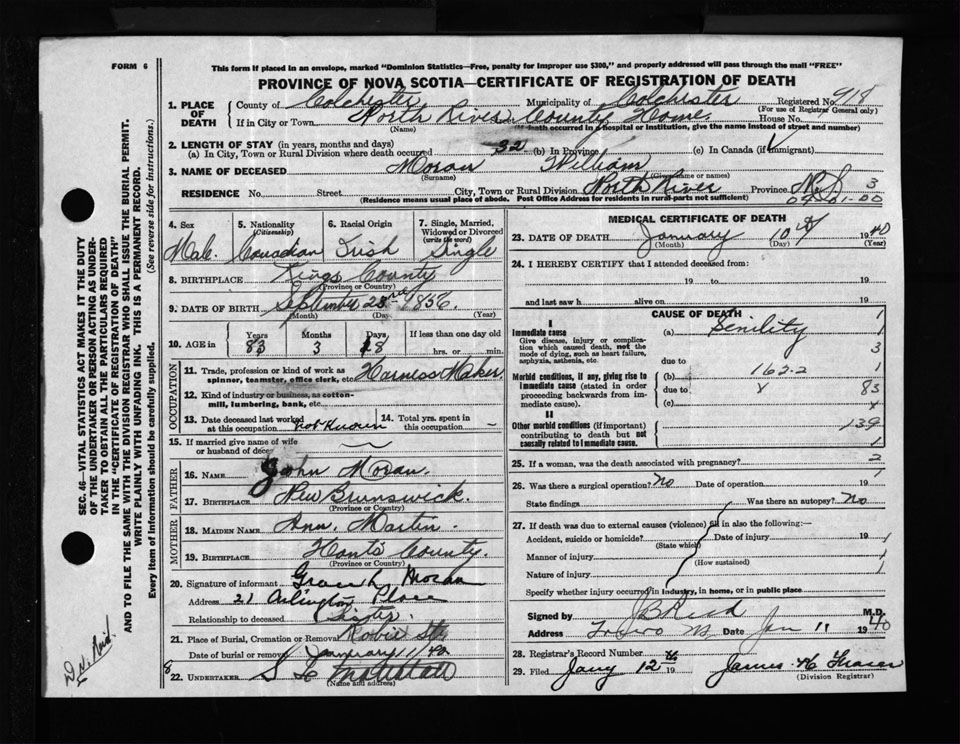 FORM 6
This form if placed in an envelope, marked "Dominion Statistics—Free, penalty for improper use $300," and properly addressed will pass through the mail "FREE"
PROVINCE OF NOVA SCOTIA—CERTIFICATE OF REGISTRATION OF DEATH
1. PLACE OF DEATH County of Colchester Municipality of Colchester Registered No. 918
(For use of Registrar General only)
If in City or Town North River County Home. House No.
(Name) (If death occurred in a hospital or institution, give the name instead of street and number)
2. LENGTH OF STAY (in years, months and days)
(a) In City, Town or Rural Division where death occurred 32 (b) In Province (c) In Canada (if immigrant)
3. NAME OF DECEASED Moran William
(Surname) (Given name or names)
RESIDENCE No. Street City, Town or Rural Division North River Province N.S. 3
(Residence means usual place of abode. Post Office Address for residents in rural parts not sufficient)
4. Sex 5. Nationality (Citizenship) 6. Racial Origin 7. Single, Married, Widowed or Divorced (write the word)
Male Canadian Irish Single
8. BIRTHPLACE Kings County
(Province or Country)
9. DATE OF BIRTH September 1856
(Month) (Day) (Year)
10. AGE in Years Months Days If less than one day old
83 3 18 hrs. or min.
OCCUPATION
11. Trade, profession or kind of work as spinner, teamster, office clerk, etc. Harness Maker.
12. Kind of industry or business, as cotton-mill, lumbering, bank, etc.
13. Date deceased last worked at this occupation not known 14. Total yrs. spent in this occupation –
15. If married give name of wife or husband of deceased
FATHER
16. NAME John Moran.
17. BIRTHPLACE New Brunswick.
(Province or Country)
MOTHER
18. MAIDEN NAME Ann Martin
19. BIRTHPLACE Hants County.
(Province or Country)
20. Signature of informant Grace L. Moran
Address 21 Arlington Place
Relationship to deceased
21. Place of Burial, Cremation or Removal
Date of burial or removal January 11/40
22. UNDERTAKER
(Name and address)
MEDICAL CERTIFICATE OF DEATH
23. DATE OF DEATH January 10th 1940
(Month) (Day) (Year)
24. I HEREBY CERTIFY that I attended deceased from:
19 to 19
and last saw h alive on 19
CAUSE OF DEATH
I
Immediate cause (a) Senility 1
Give disease, injury or complication which caused death, not the mode of dying, such as heart failure, asphyxia, asthenia, etc. 3
due to
Morbid conditions, if any, giving rise to immediate cause (stated in order proceeding backwards from immediate cause). (b) 162-2 1
due to x 83
(c) x
II
Other morbid conditions (if important) contributing to death but not causally related to immediate cause. 139
1
25. If a woman, was the death associated with pregnancy? 2
26. Was there a surgical operation? No Date of operation 1
State findings Was there an autopsy? No
27. If death was due to external causes (violence) fill in also the following:—
Accident, suicide or homicide? Date of injury 19
(State which)
Manner of injury
(How sustained)
Nature of injury
Specify whether injury occurred in industry, in home, or in public place
Signed by J B Reid M.D.
Address Truro Date Jan 11 1940
28. Registrar's Record Number
29. Filed Jany 12 19 James
(Division Registrar)
SEC. 46—VITAL STATISTICS ACT MAKES IT THE DUTY
OF THE UNDERTAKER OR PERSON ACTING AS UNDERTAKER TO OBTAIN ALL THE PARTICULARS REQUIRED
IN THE "CERTIFICATE OF REGISTRATION OF DEATH"
AND TO FILE THE SAME WITH THE DIVISION REGISTRAR WHO SHALL ISSUE THE BURIAL PERMIT.
WRITE PLAINLY WITH UNFADING INK. THIS IS A PERMANENT RECORD.
Every item of Information should be carefully supplied. (See reverse side for instructions.)